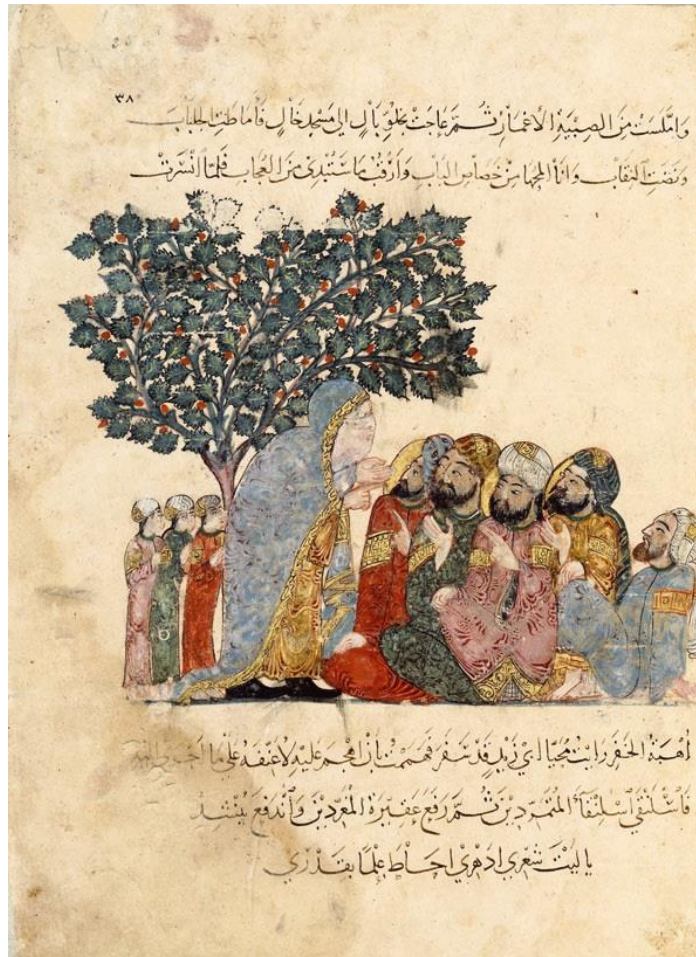 ٣٨
وَامَّلَسَتْ مِنَ الصِبْيَةِ الأَغْمَارِ ثُمَّ عَاجَتْ بِخُلُوِّ بَالٍ إلى مَسْجِدٍ خَالٍ فَأَمَاطَتِ الجِلبَابَ
وَنَضَتِ النِقَابَ وَأنَا أَلْمَحُهَا مِنْ خَصَاصِ البَابِ وَأَرْقُبُ مَا سَتُبْدِي مِنَ العُجَابِ فَلَمَّا انْسَرَتْ
أُهْبَةُ الخَفَرِ رَايتُ مُحَيَّا ابي زَيْدٍ قَدْ سَفَرَ فَهَمَمْتُ بِأَنْ اهْجُمَ عَلَيْهِ لِأُعَنِّفَهُ عَلَى مَا
فَاسْلَنْقَى اسْلِنْقَآءَ المُتَمَرِّدِيْنَ ثُمَّ رَفَعَ عَقِيْرَةَ المُغَرِّدِيْنَ وَانْدَفَعَ يُنْشِدُ
يا لَيْتَ شِعْرِي ادَهْرِي احَاطَ عِلْمًا بِقَدْرِي